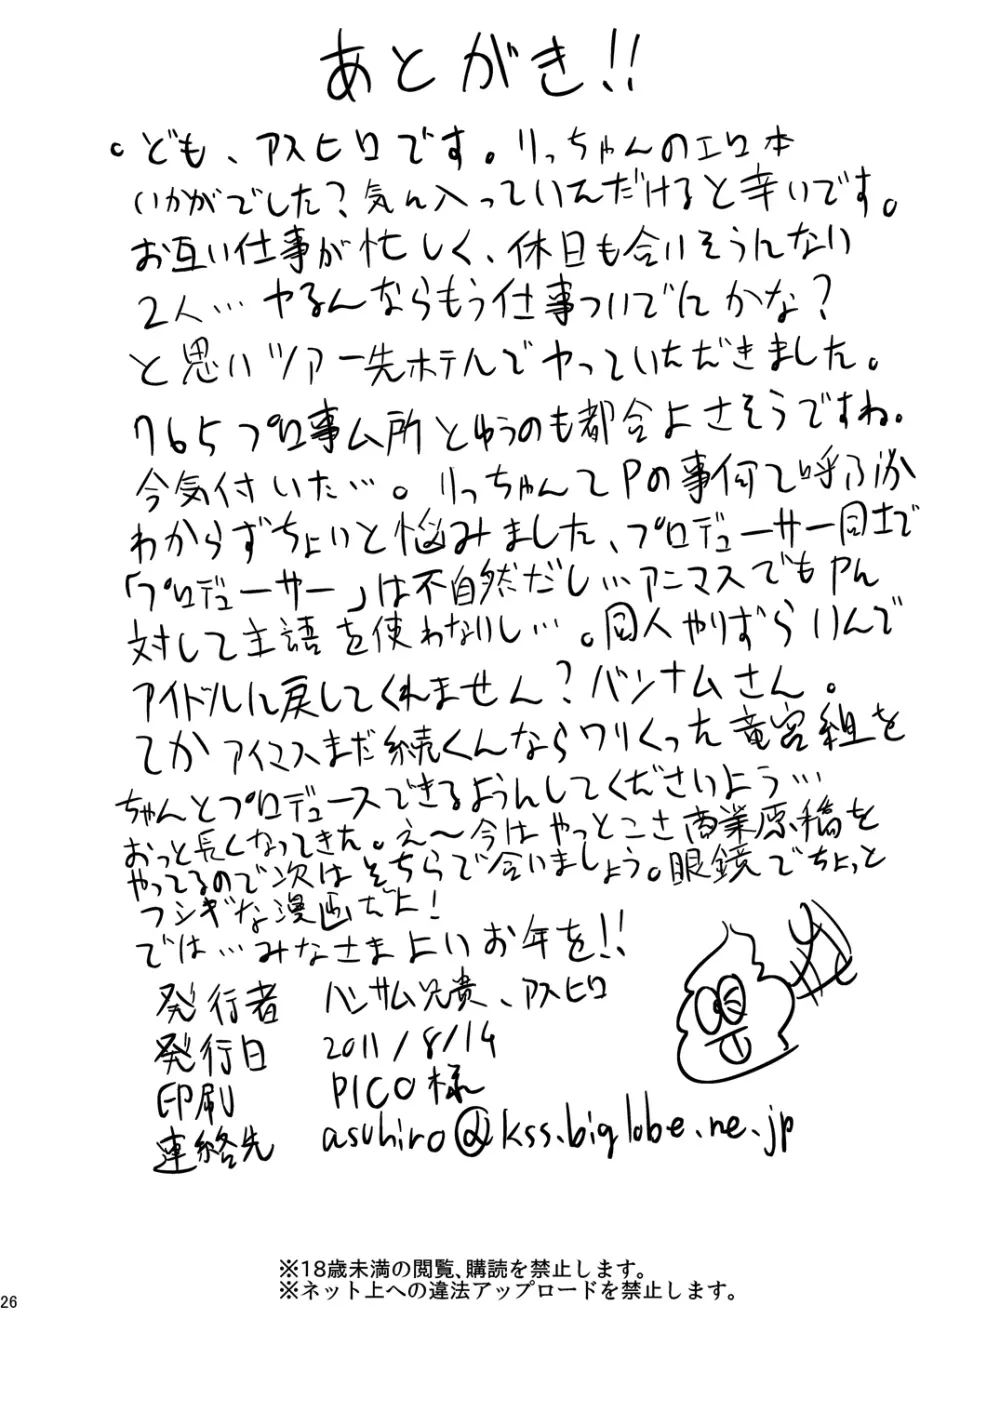 あとがき!!
。ども、アスヒロです。りっちゃんのエロ本
いかがでした?気に入っていただけると幸いです。
お互い仕事が忙しく、休日も合いそうにない
2人…ヤるんならもう仕事ついでにかな?
と思いツアー先ホテルでヤっていただきました。
765プロ事ム所とゆうのも都合よさそうですね。
今気付いた…。りっちゃんてPの事何て呼ぶか
わからずちょいと悩みました、プロデューサー同士で
「プロデューサー」は不自然だし…アニマスでもPに
対して主語を使わないし…。同人やりずらいんで
アイドルに戻してくれません?バンナムさん。
てかアイマスまだ続くんならワリくった竜宮組を
ちゃんとプロデュースできるようにしてくださいよう…
おっと長くなってきた。え〜今はやっとこさ商業原稿を
やってるので次はそちらで会いましょう。眼鏡でちょっと
フシギな漫画だよ!
では…みなさまよいお年を!!
発行者 ハンサム兄貴、アスヒロ
発行日 2011/8/14
印刷 PICO様
連絡先 asuhiro@kss.biglobe.ne.jp
※18歳未満の閲覧、購読を禁止します。
※ネット上への違法アップロードを禁止します。
26